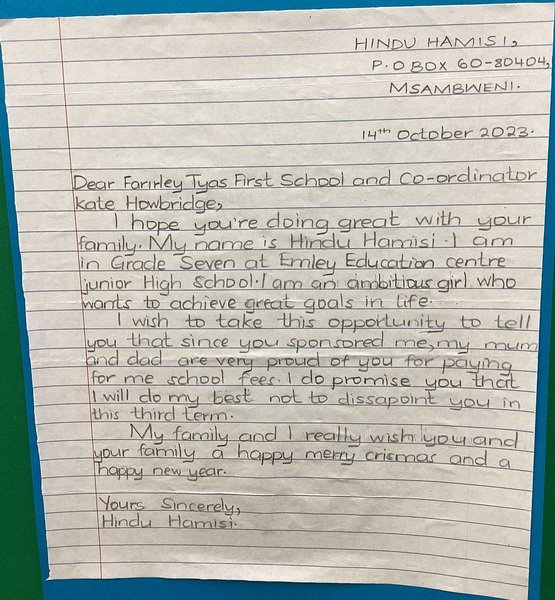 HINDU HAMISI,
P.O BOX 60-80404,
MSAMBWENI.
14th October 2023.
Dear Farnley Tyas First School and Co-ordinator
Kate Howbridge,
I hope you're doing great with your
family. My name is Hindu Hamisi. I am
in Grade Seven at Emley Education centre
junior High School. I am an ambitious girl who
wants to achieve great goals in life.
I wish to take this opportunity to tell
you that since you sponsored me, my mum
and dad are very proud of you for paying
for me school fees. I do promise you that
I will do my best not to dissapoint you in
this third term.
My family and I really wish you and
your family a happy merry crismas and a
happy new year.
Yours Sincerely,
Hindu Hamisi.